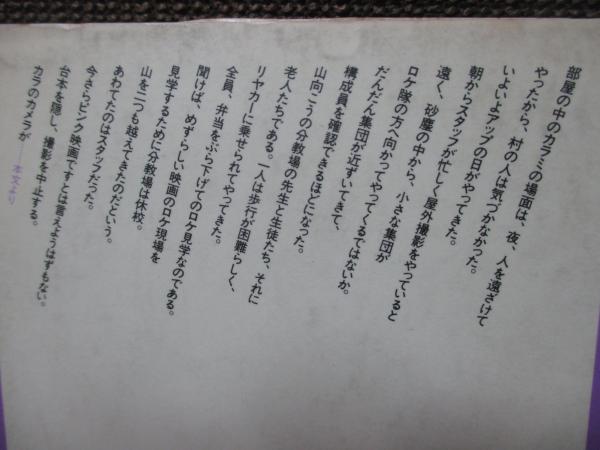 部屋の中のカラミの場面は、夜、人を遠ざけて
やったから、村の人は気づかなかった。
いよいよアップの日がやってきた。
朝からスタッフが忙しく屋外撮影をやっていると
遠く、砂塵の中から、小さな集団が
ロケ隊の方へ向かってやってくるではないか。
だんだん集団が近ずいてきて、
構成員を確認できるほどになった。
山向こうの分教場の先生と生徒たち、それに
老人たちである。一人は歩行が困難らしく、
リヤカーに乗せられてやってきた。
全員、弁当をぶら下げてのロケ見学なのである。
聞けば、めずらしい映画のロケ現場を
見学するために分教場は休校。
山を二つも越えてきたのだという。
あわてたのはスタッフだった。
今さらピンク映画ですとは言えようはずもない。
台本を隠し、撮影を中止する。
カラのカメラが——本文より